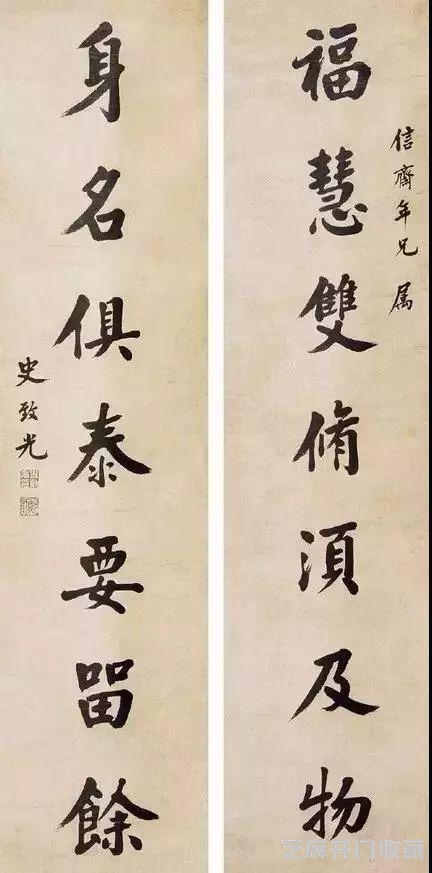 信齋年兄 属
福慧雙脩須及物
身名俱泰要畱餘
史致光
芝麻开门收藏